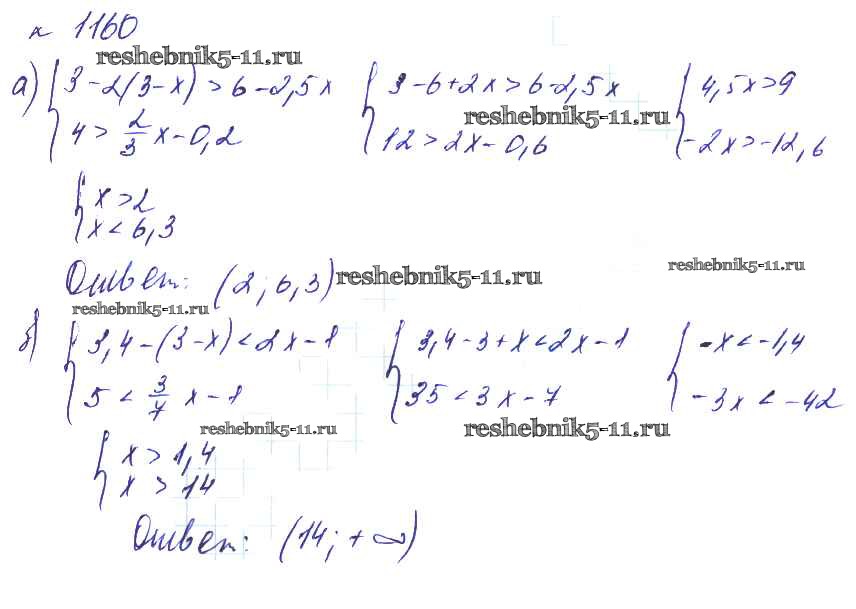 № 1160
reshebnik5-11.ru
а) { 3-2(3-x)>6-2,5x { 3-6+2x>6-2,5x { 4,5x>9
reshebnik5-11.ru
4>2/3x-0,2 12>2x-0,6 -2x>-12,6
{ x>2
x<6,3
Ответ: (2; 6,3) reshebnik5-11.ru reshebnik5-11.ru
reshebnik5-11.ru
б) { 3,4-(3-x)<2x-1 { 3,4-3+x<2x-1 { -x<-1,4
5<3/7 x-1 35<3x-7 -3x<-42
reshebnik5-11.ru reshebnik5-11.ru
{ x>1,4
x>14
Ответ: (14; +∞)